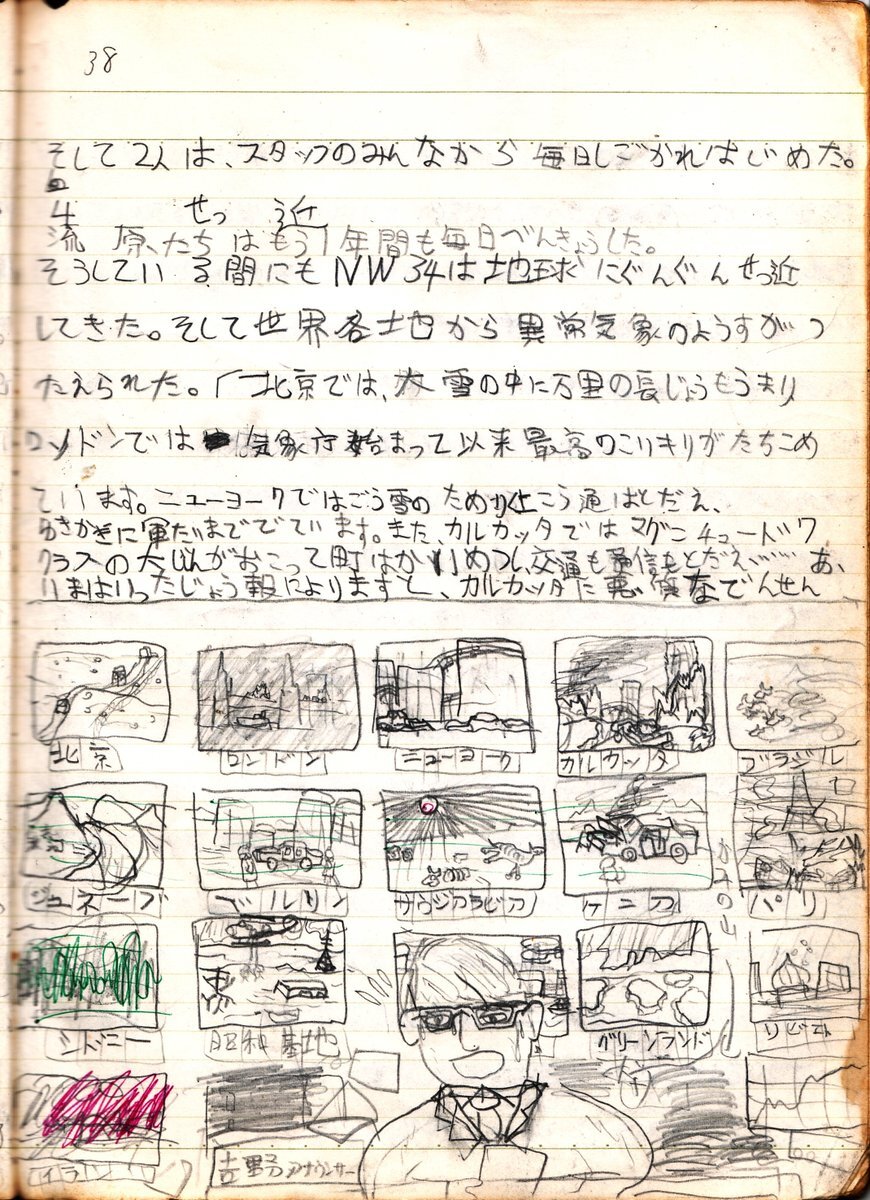 38
そして2人は、スタッフのみんなから毎日しごかれはじめた。
4 せっ近
流原たちはもう1年間も毎日べんきょうした。
そうしている間にもNW34は地球にぐんぐんせっ近
してきた。そして世界各地から異常気象のようすがつ
たえられた。「北京では、大雪の中に万里の長じょうもうまり
ロンドンでは気象庁始まって以来最高のこいきりがたちこめ
ています。ニューヨークではごう雪のため
こう通はとだえ、
ゆきかきに軍たいまででています。また、カルカッタではマグニチュード7
クラスの大じしんがおこって町はかいめつし、交通も予信もとだえ…… あ、
いまはいったじょう報によりますと、カルカッタに悪質なでんせん
北京
ロンドン
ニューヨーク
カルカッタ
ブラジル
ジュネーブ
ベルリン
サウジアラビア
ケニア
パリ
シドニー
昭和基地
グリーンランド
ソビエト
イラン
吉野アナウンサー